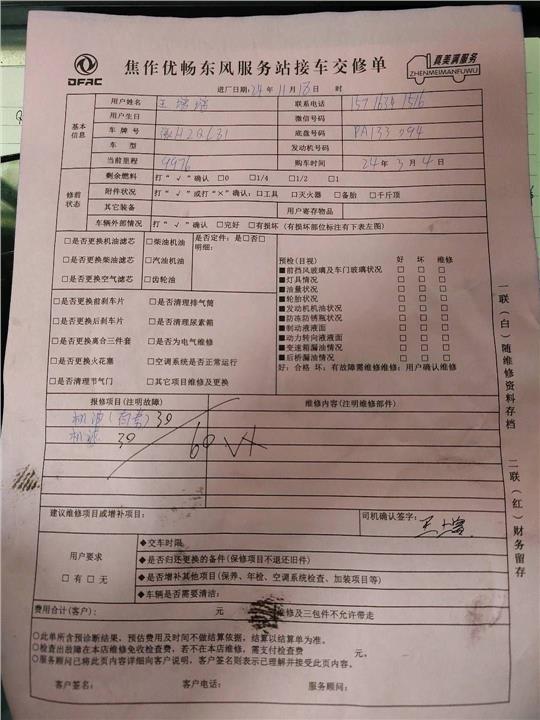 DFAC
焦作优畅东风服务站接车交修单
真美满服务
ZHENMEIMANFUWU
进厂日期:24年11月18日 时
基本信息
用户姓名 联系电话
用户生日 微信号码
车牌号 底盘号码 PA133094
车型 发动机号码
当前里程 9976 购车时间 24年3月4日
修前状态
剩余燃料 打"√"确认 □0 □1/4 □1/2 □1
附件状况 打"√"或打"×"确认:□工具 □灭火器 □备胎 □千斤顶
其它装备 用户寄存物品
车辆外部情况 打"√"确认 □完好 □有损坏(有损坏部位标注有下表左图)
□是否更换机油滤芯 □柴油机油 是否定件:是□否□
□是否更换柴油滤芯 □汽油机油 明细:
□是否更换空气滤芯 □齿轮油
□是否更换前刹车片 □是否清理排气筒
□是否更换后刹车片 □是否清理尿素箱
□是否更换离合三件套 □是否为电气维修
□是否更换火花塞 □空调系统是否正常运行
□是否清理节气门 □其它项目维修及更换
预检(目视) 好 坏 维修
■前挡风玻璃及车门玻璃状况 □ □ □
■灯具情况 □ □ □
■油量状况 □ □ □
■轮胎状况 □ □ □
■发动机机油状况 □ □ □
■防冻防锈瓶状况 □ □ □
■制动液液面 □ □ □
■动力转向液液面 □ □ □
■变速箱漏油情况 □ □ □
■后桥漏油情况 □ □ □
好:合格 坏:有故障需维修维修:用户确认维修
报修项目(注明故障) 维修内容(注明维修部件)
机油 30
机滤 30
60
建议维修项目或增补项目: 司机确认签字:
用户要求
□有□无
◆交车时限
◆是否归还更换的备件(保修项目不退还旧件)
◆是否增补其他项目(保养、年检、空调系统检查、加装项目等)
◆车辆是否需要清洁:
费用合计(客户): 元 维修及三包件不允许带走
○此单所含预诊断结果,预估费用及时间不做结算依据,结算以结算单为准。
○检查出故障在本店维修免收检查费,若不在本店维修,需支付检查费 元。
○服务顾问已将此页内容详细向客户说明,客户签名则表示已理解并接受此页内容。
客户签名: 客户电话: 服务顾问:
一联(白)随维修资料存档
二联(红)财务留存